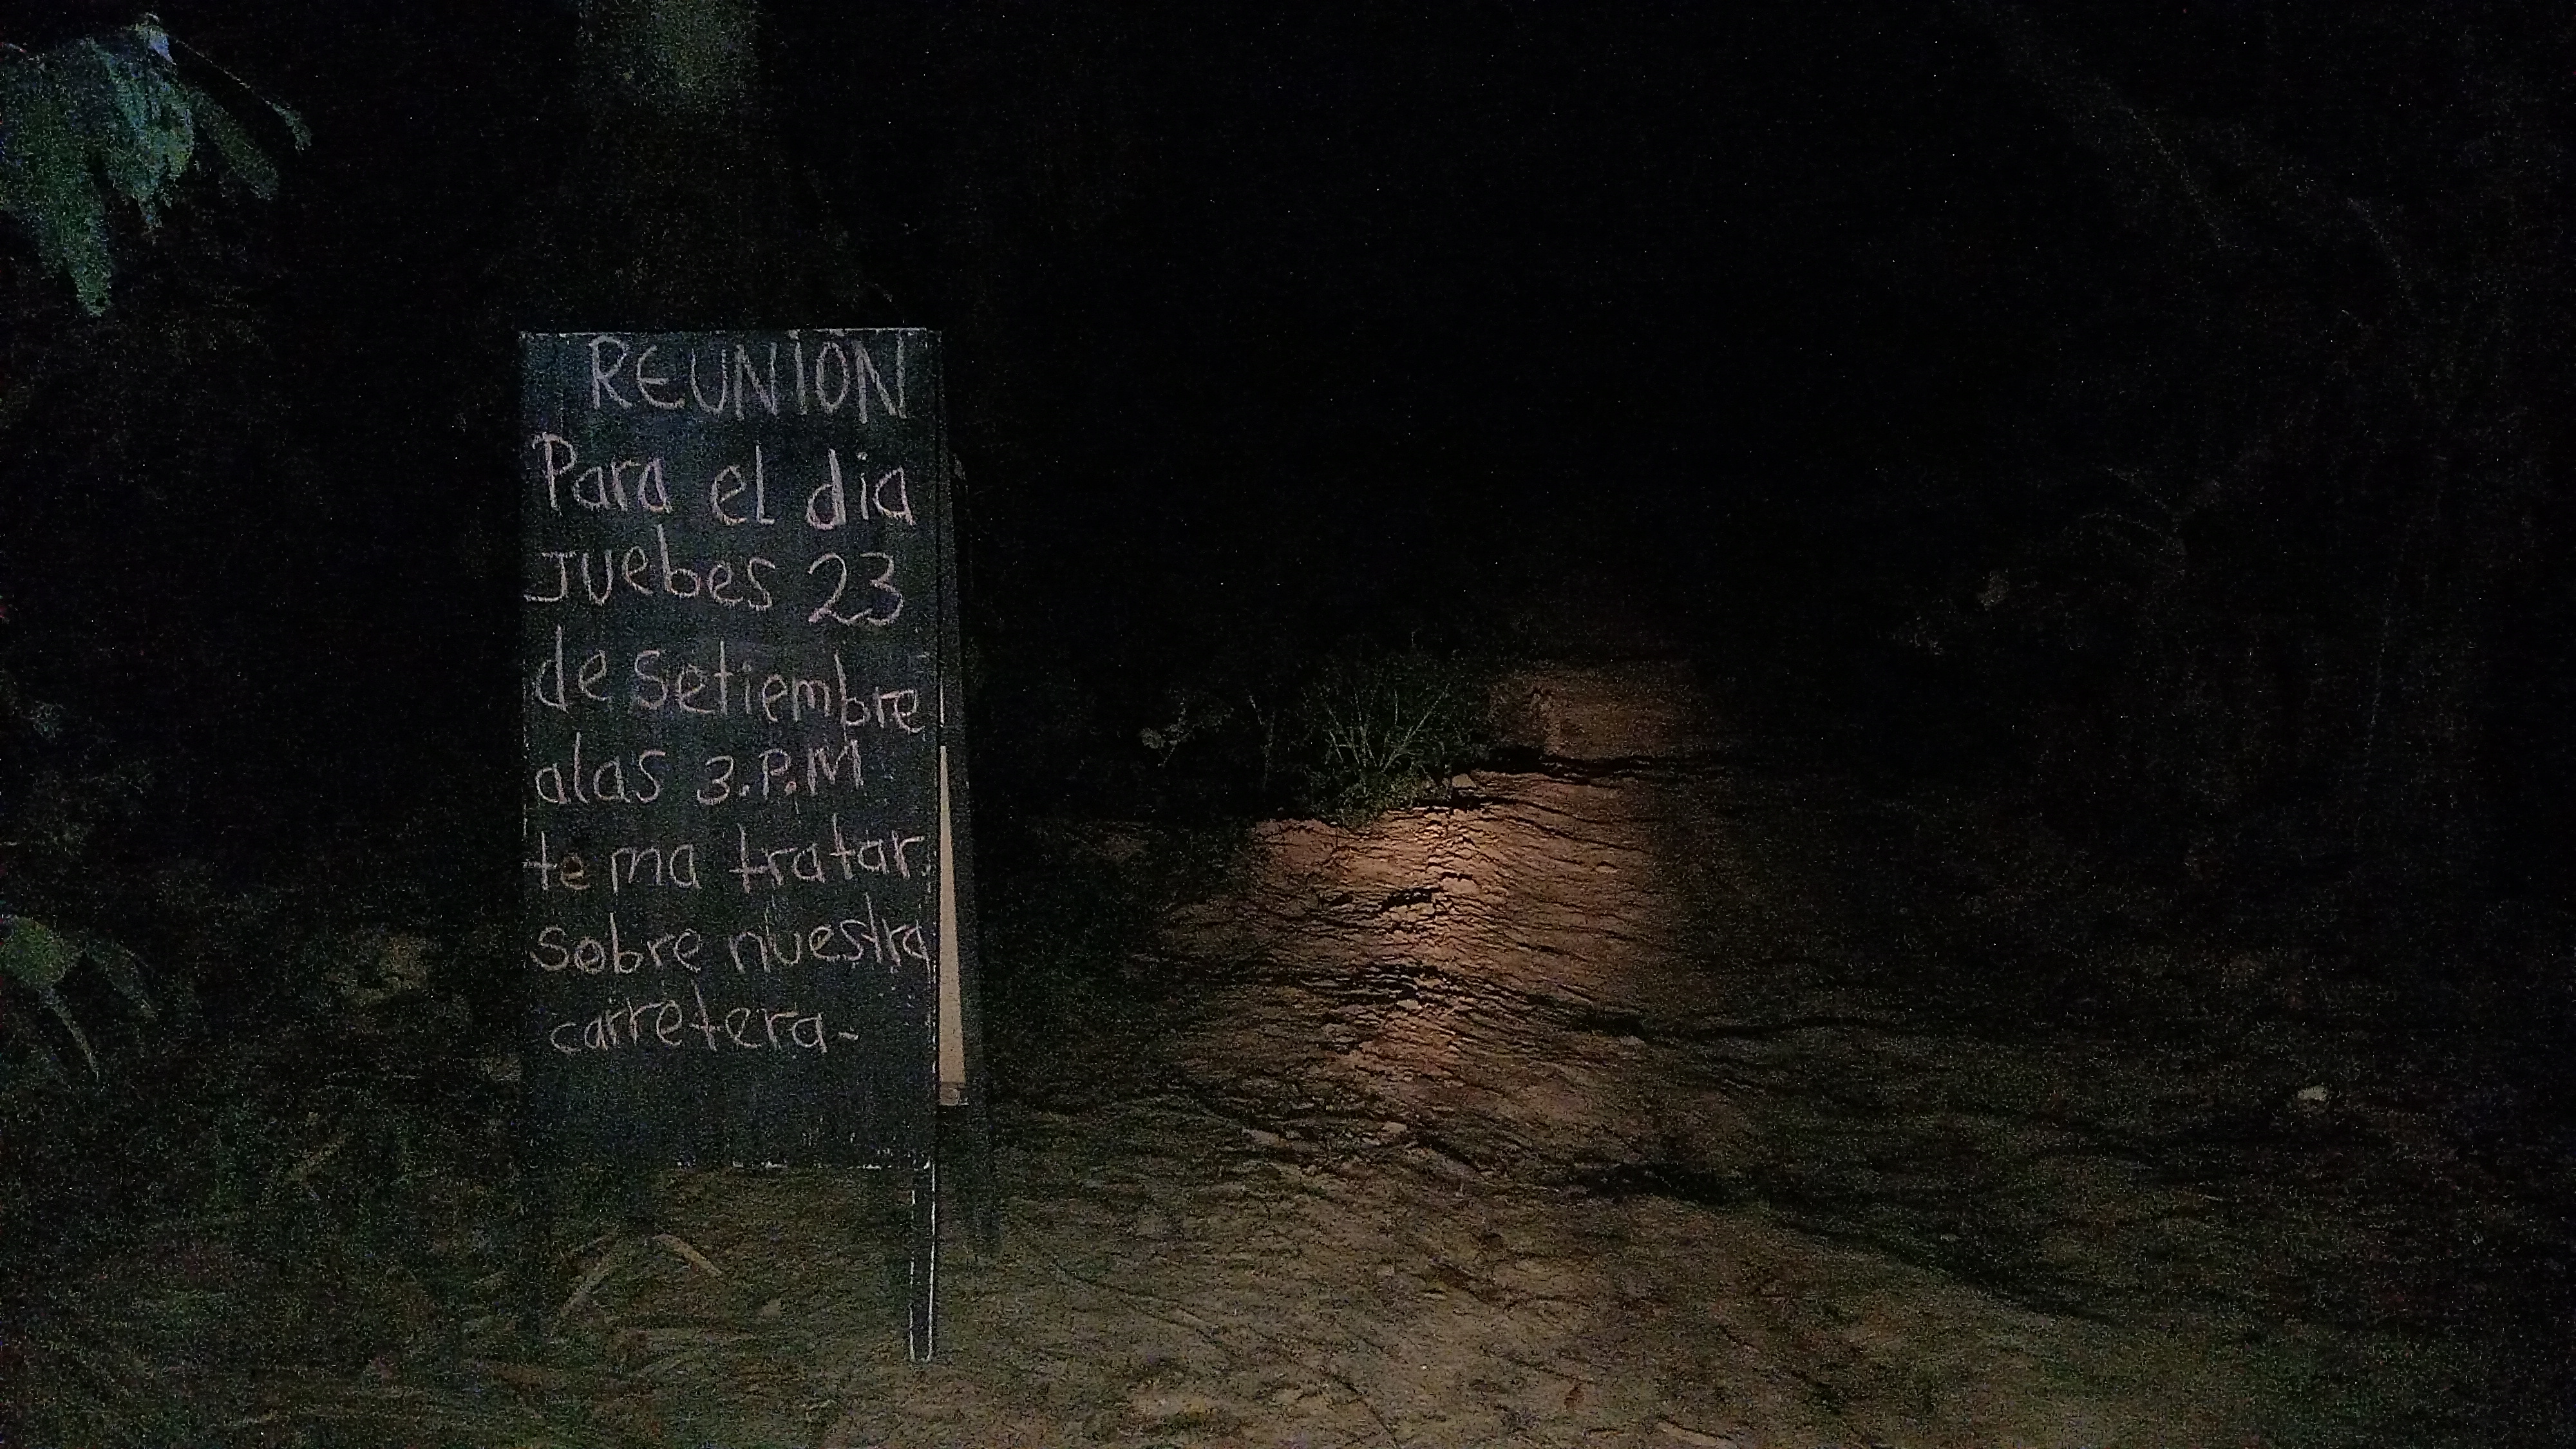 REUNION
Para el dia
Juebes 23
de setiembre
alas 3.P.M
tema tratar
sobre nuestra
carretera-